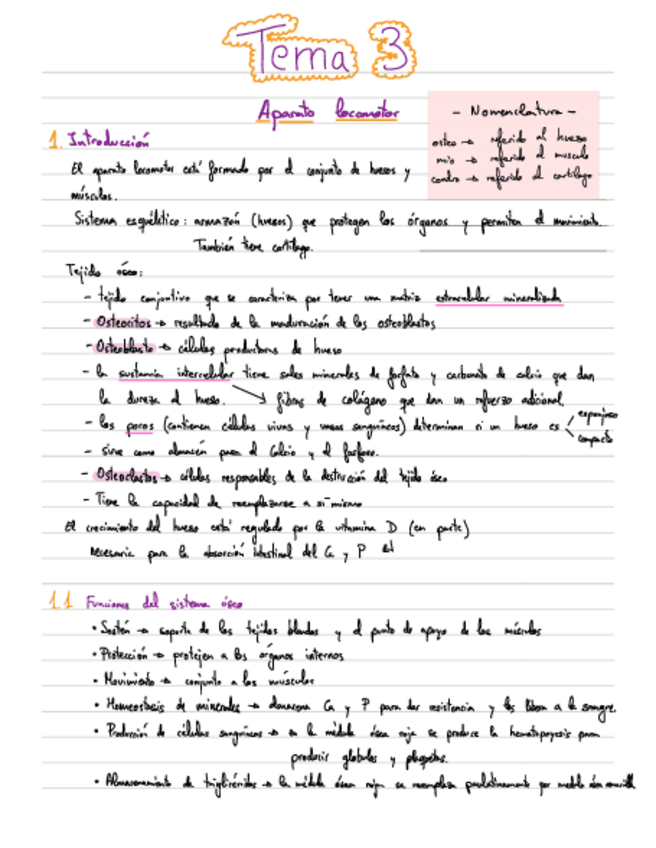 Tema 3
Aparato locomotor
- Nomenclatura -
osteo → referido al hueso
mio → referido al musculo
condro → referido al cartílago
1. Introducción
El aparato locomotor está formado por el conjunto de huesos y
músculos.
Sistema esquelético: armazón (huesos) que protegen los órganos y permiten el movimiento.
También tiene cartílago.
Tejido óseo:
- tejido conjuntivo que se caracteriza por tener una matriz extracelular mineralizada
- Osteocitos → resultado de la maduración de los osteoblastos
- Osteoblasto → células productoras de hueso
- la sustancia intercelular tiene sales minerales de fosfato y carbonato de calcio que dan
la dureza al hueso. → fibras de colágeno que dan un refuerzo adicional.
- los poros (contienen células vivas y vasos sanguíneos) determinan si un hueso es < esponjoso
compacto
- sirve como almacén para el Calcio y el fosforo.
- Osteoclastos → células responsables de la destrucción del tejido óseo
- Tiene la capacidad de reemplazarse a sí mismo
El crecimiento del hueso está regulado por la vitamina D (en parte)
Necesaria para la absorción intestinal del Ca y P ↵
1.1 Funciones del sistema óseo
• Sostén → soporte de los tejidos blandos y el punto de apoyo de los músculos
• Protección → protejen a los órganos internos
• Movimiento → conjunto a los músculos
• Homeostasis de minerales → almacena Ca y P para dar resistencia y los libera a la sangre.
• Producción de células sanguíneas → en la médula ósea roja se produce la hematopoyesis para
producir globulos y plaquetas.
• Almacenamiento de triglicéridos → la médula ósea roja se reemplaza paulatinamente por medula ósea amarilla